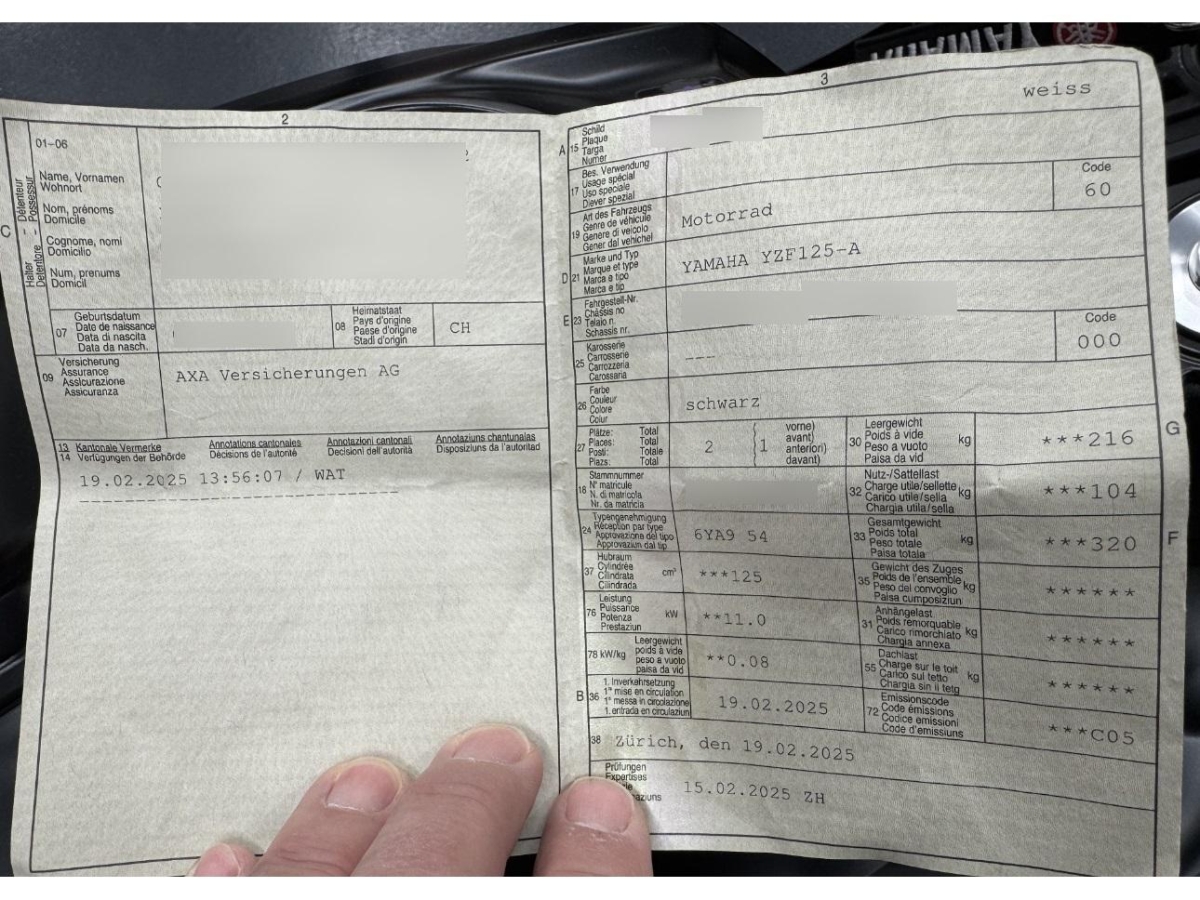 YAMAHA
2
01-06
C
Halter - Détenteur
Detentore - Possessur
Name, Vornamen
Wohnort
Nom, prénoms
Domicile
Cognome, nomi
Domicilio
Num, prenums
Domicil
07
Geburtsdatum
Date de naissance
Data di nascita
Data da nasch.
08
Heimatstaat
Pays d'origine
Paese d'origine
Stadi d'origin
CH
09
Versicherung
Assurance
Assicurazione
Assicuranza
AXA Versicherungen AG
13 Kantonale Vermerke
14 Verfügungen der Behörde
Annotations cantonales
Décisions de l'autorité
Annotazioni cantonali
Decisioni dell'autorità
Annotaziuns chantunalas
Disposiziuns da l'autoritad
19.02.2025 13:56:07 / WAT
3
weiss
A 15
Schild
Plaque
Targa
Numer
17
Bes. Verwendung
Usage spécial
Uso speciale
Diever spezial
Code
60
19
Art des Fahrzeugs
Genre de véhicule
Genere di veicolo
Gener dal vehichel
Motorrad
D 21
Marke und Typ
Marque et type
Marca e tipo
Marca e tip
YAMAHA YZF125-A
E 23
Fahrgestell-Nr.
Châssis no
Telaio n.
Schassis nr.
Code
000
25
Karosserie
Carrosserie
Carrozzeria
Carossaria
---
26
Farbe
Couleur
Colore
Colur
schwarz
27
Plätze: Total
Places: Total
Posti: Totale
Plazs: Total
2
{ 1
vorne)
avant)
anteriori)
davant)
30
Leergewicht
Poids à vide
Peso a vuoto
Paisa da vid
kg
***216
G
18
Stammnummer
N° matricule
N. di matricola
Nr. da matricla
32
Nutz-/Sattellast
Charge utile/sellette
Carico utile/sella
Chargia utila/sella
kg
***104
24
Typengenehmigung
Réception par type
Approvazione del tipo
Approvaziun dal tip
6YA9 54
33
Gesamtgewicht
Poids total
Peso totale
Paisa totala
kg
***320
F
37
Hubraum
Cylindrée
Cilindrata
Cilindrada
cm³
***125
35
Gewicht des Zuges
Poids de l'ensemble
Peso del convoglio
Paisa cumposiziun
kg
******
76
Leistung
Puissance
Potenza
Prestaziun
kW
**11.0
31
Anhängelast
Poids remorquable
Carico rimorchiato
Chargia annexa
kg
******
78 kW/kg
Leergewicht
poids à vide
peso a vuoto
paisa da vid
**0.08
55
Dachlast
Charge sur le toit
Carico sul tetto
Chargia sin il tetg
kg
******
B 36
1. Inverkehrsetzung
1re mise en circulation
1a messa in circolazione
1. entrada en circulaziun
19.02.2025
72
Emissionscode
Code émissions
Codice emissioni
Code d'emissiuns
***C05
38
Zürich, den 19.02.2025
Prüfungen
Expertises
15.02.2025 ZH